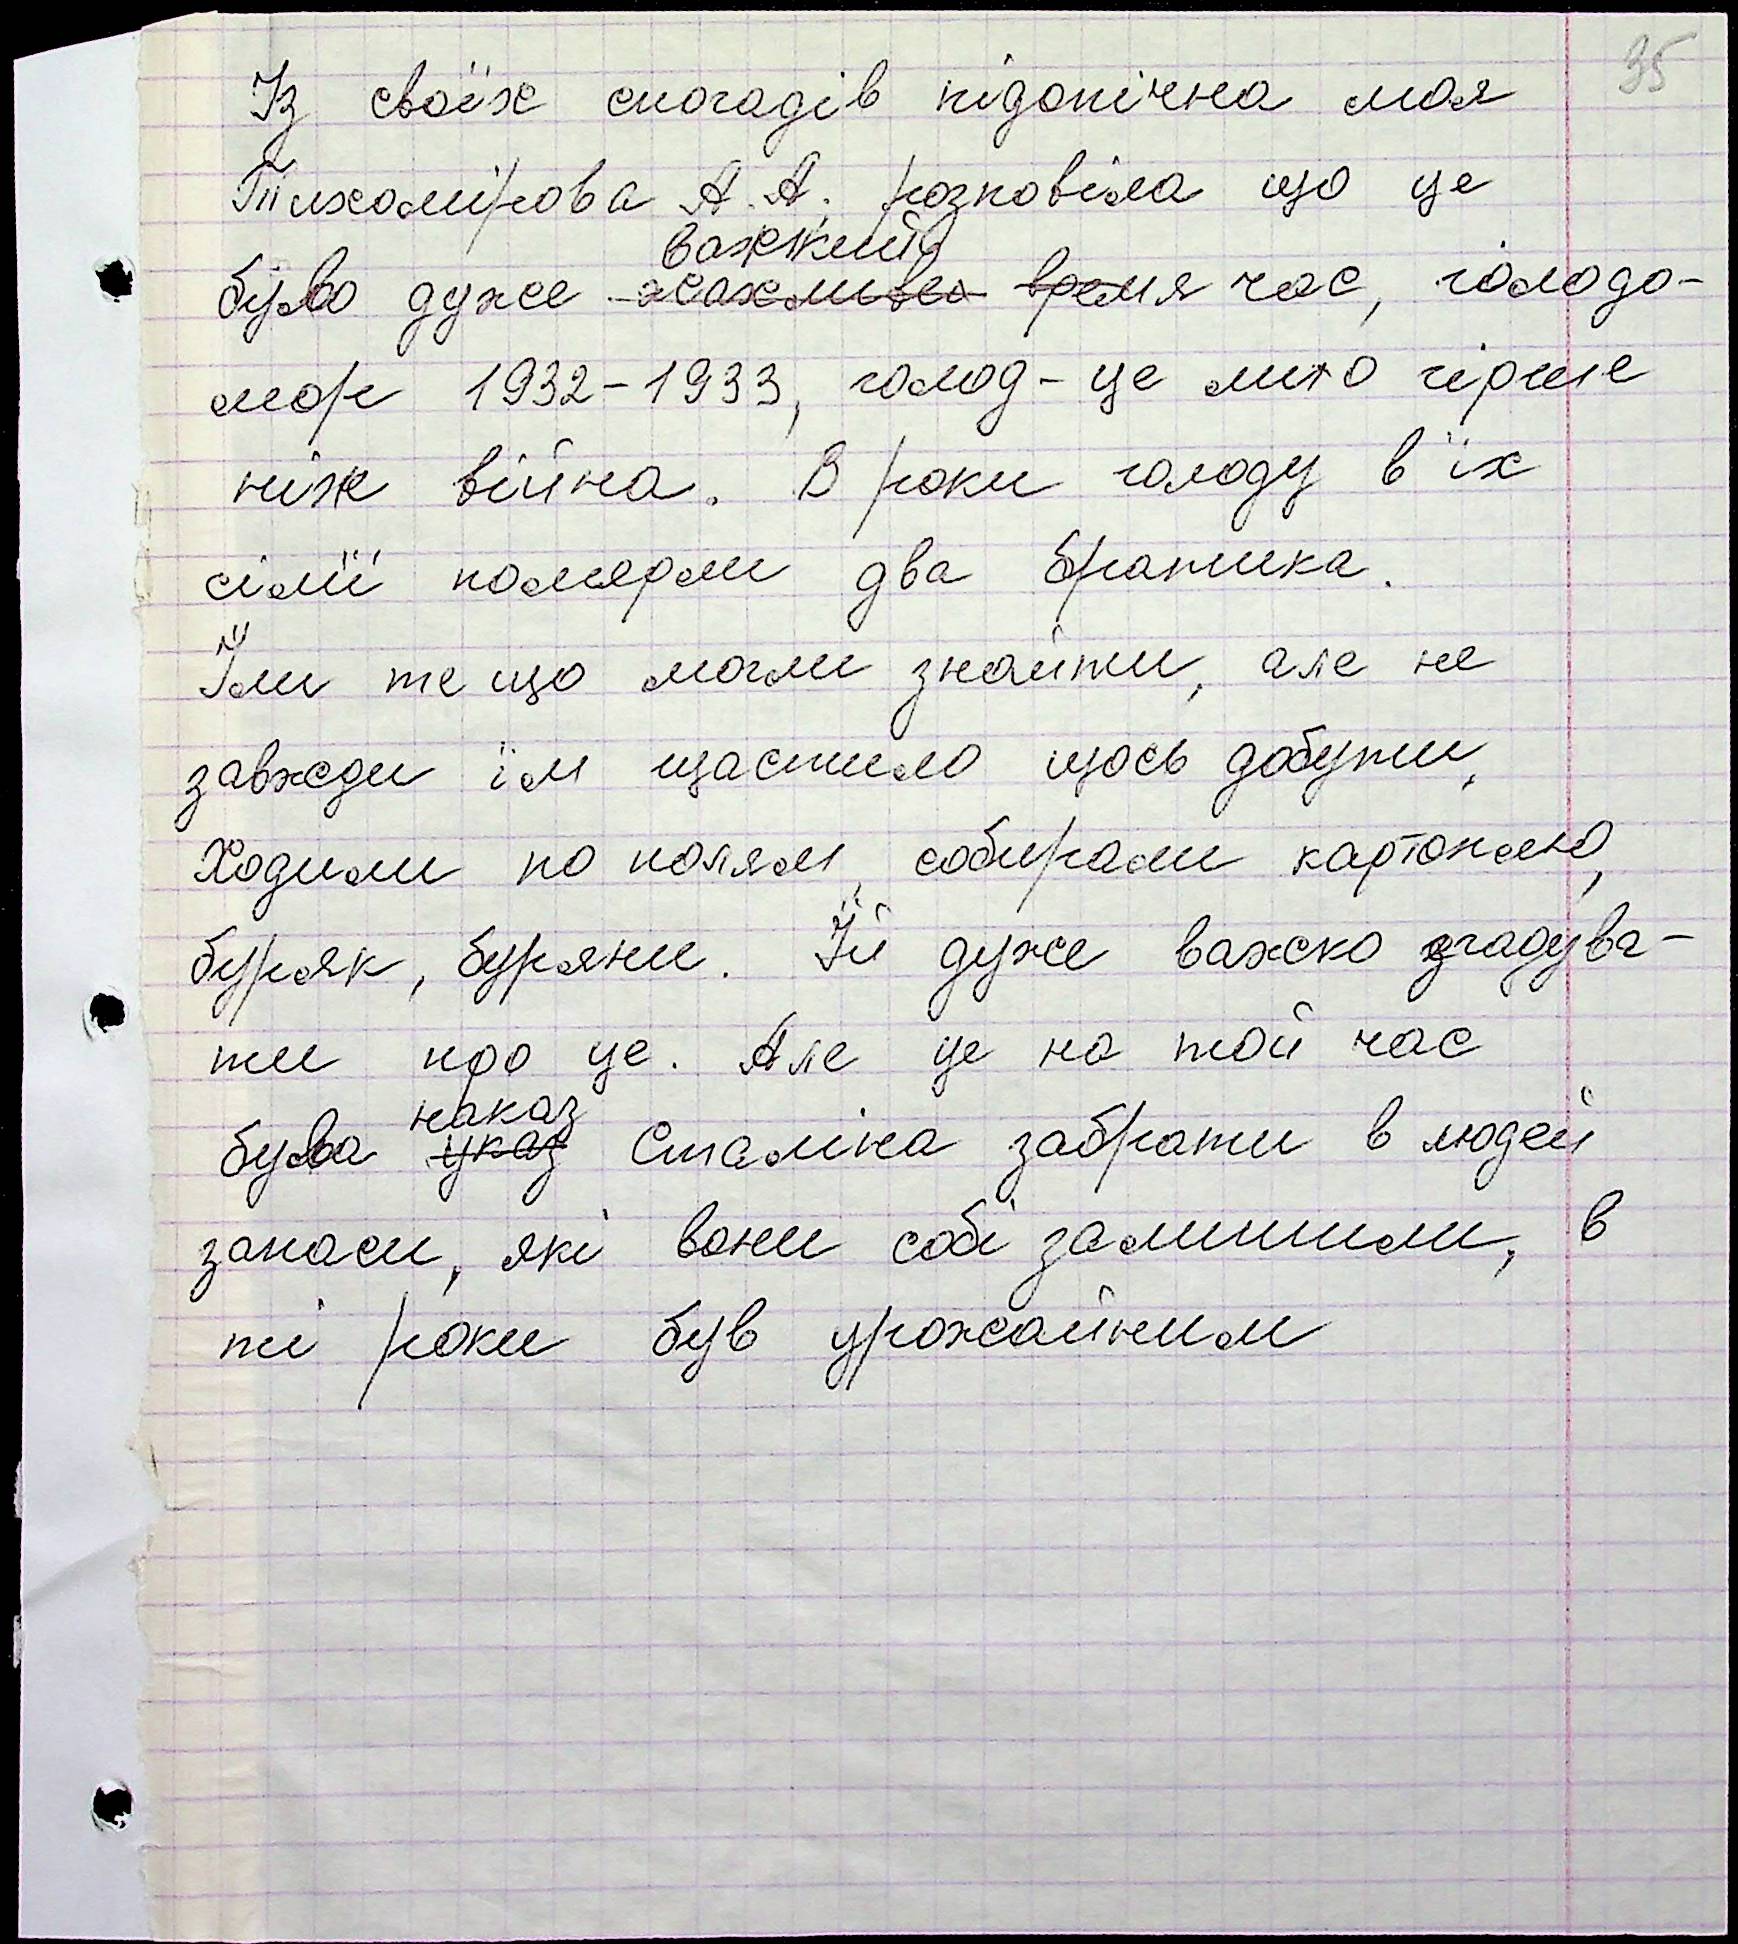 35
Із своїх спогадів підопічна моя
Тихомірова А.А. розповіла що це
важкий
було дуже жахливо время час, голодо-
мор 1932-1933, голод - це лихо гірше
ніж війна. В роки голоду в їх
сімїі помярли два братика.
Їли те що могли знайти, але не
завжди їм щастило щось добути,
Ходили по полям, собирали картоплю,
буряк, буряни. Їй дуже важко згадува-
ти про це. Але це на той час
наказ
була указ Сталіна забрати в людей
запаси, які вони собі залишили, в
ті роки був урожайним